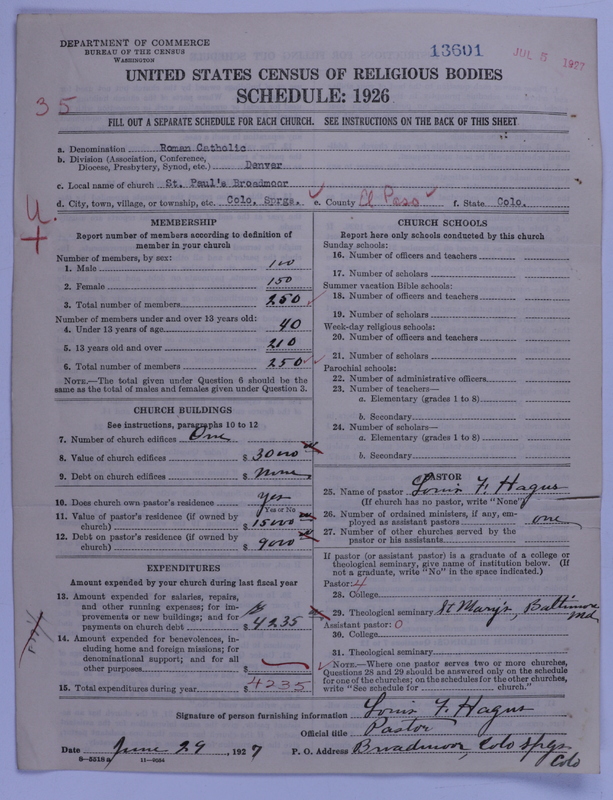 DEPARTMENT OF COMMERCE
BUREAU OF THE CENSUS
WASHINGTON
13601
JUL 5 1927
UNITED STATES CENSUS OF RELIGIOUS BODIES
SCHEDULE: 1926
35
FILL OUT A SEPARATE SCHEDULE FOR EACH CHURCH. SEE INSTRUCTIONS ON THE BACK OF THIS SHEET
a. Denomination Roman Catholic
b. Division (Association, Conference, Diocese, Presbytery, Synod, etc.) Denver
c. Local name of church St. Paul's Broadmoor
d. City, town, village, or township, etc. Colo. Sprgs. e. County El Paso f. State Colo.
U.
MEMBERSHIP
Report number of members according to definition of
member in your church
Number of members, by sex:
1. Male 100
2. Female 150
3. Total number of members 250
Number of members under and over 13 years old:
4. Under 13 years of age 40
5. 13 years old and over 210
6. Total number of members 250
NOTE.—The total given under Question 6 should be the
same as the total of males and females given under Question 3.
CHURCH BUILDINGS
See instructions, paragraphs 10 to 12
7. Number of church edifices One
8. Value of church edifices $ 30000
9. Debt on church edifices $ none
10. Does church own pastor's residence yes
Yes or No
11. Value of pastor's residence (if owned by
church) $ 15000
12. Debt on pastor's residence (if owned by
church) $ 9000
EXPENDITURES
Amount expended by your church during last fiscal year
13. Amount expended for salaries, repairs,
and other running expenses; for im-
provements or new buildings; and for
payments on church debt $ 4235
14. Amount expended for benevolences, in-
cluding home and foreign missions; for
denominational support; and for all
other purposes $
15. Total expenditures during year $ 4235
CHURCH SCHOOLS
Report here only schools conducted by this church
Sunday schools:
16. Number of officers and teachers
17. Number of scholars
Summer vacation Bible schools:
18. Number of officers and teachers
19. Number of scholars
Week-day religious schools:
20. Number of officers and teachers
21. Number of scholars
Parochial schools:
22. Number of administrative officers
23. Number of teachers—
a. Elementary (grades 1 to 8)
b. Secondary
24. Number of scholars—
a. Elementary (grades 1 to 8)
b. Secondary
PASTOR
25. Name of pastor Louis F. Hagus
(If church has no pastor, write "None")
26. Number of ordained ministers, if any, em-
ployed as assistant pastors one
27. Number of other churches served by the
pastor or his assistants
If pastor (or assistant pastor) is a graduate of a college or
theological seminary, give name of institution below. (If
not a graduate, write "No" in the space indicated.)
Pastor: 4
28. College
29. Theological seminary St Mary's, Baltimore
Md.
Assistant pastor: 0
30. College
31. Theological seminary
NOTE.—Where one pastor serves two or more churches,
Questions 28 and 29 should be answered only on the schedule
for one of the churches; on the schedules for the other churches,
write "See schedule for church."
Signature of person furnishing information Louis F. Hagus
Official title Pastor
Date June 29, 1927 P. O. Address Broadmoor, Colo Spgs
Colo
8-5518a 11-9554